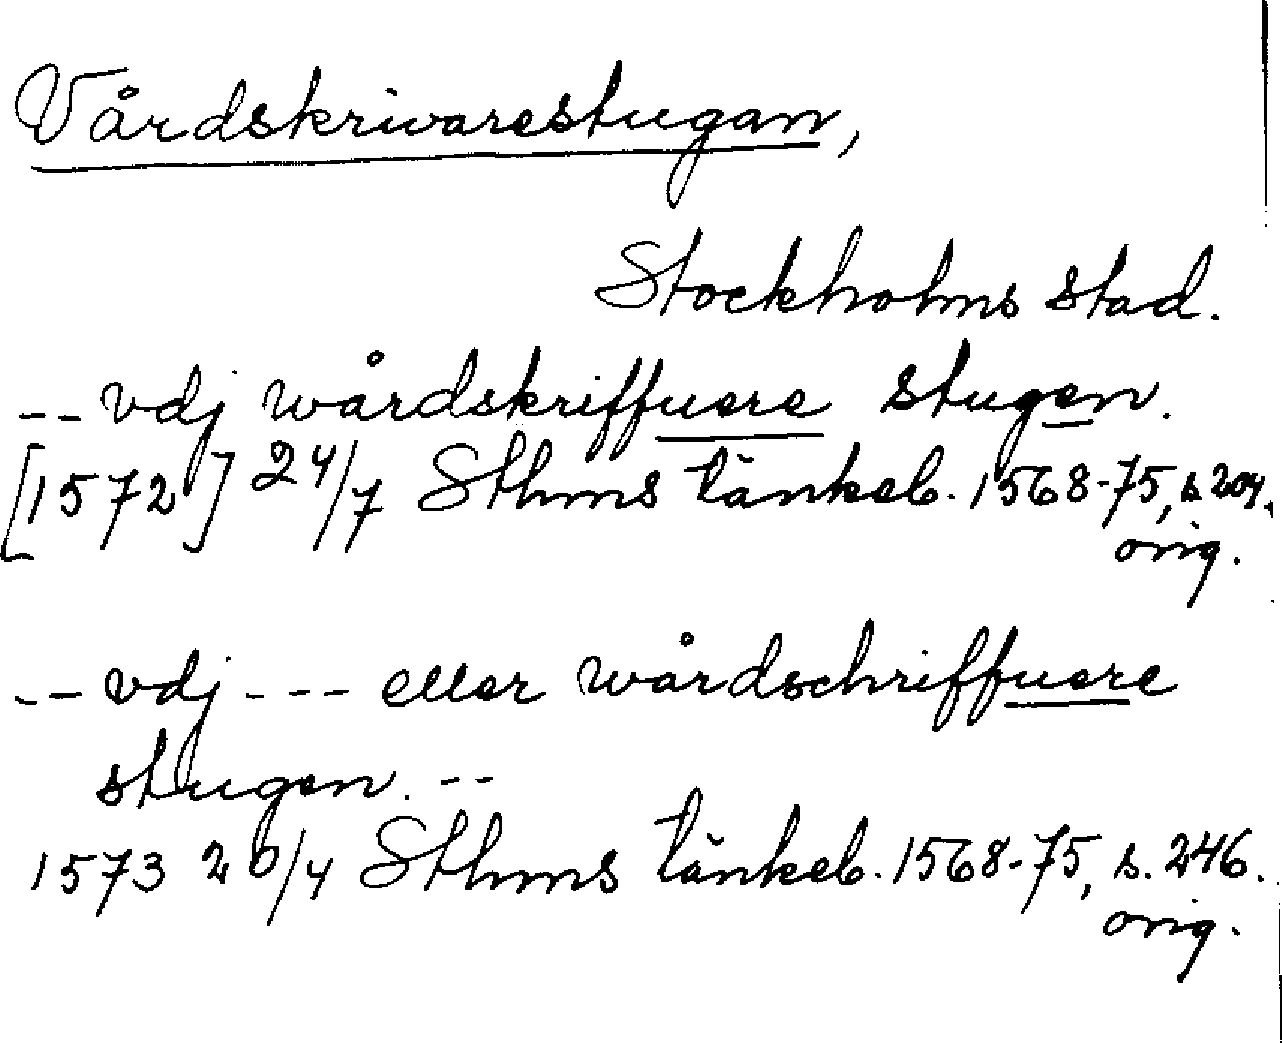 Vårdskrivarestugan,
Stockholms stad.
-- vdj wårdskriffuere stugen.
[1572] 24/7 Sthms tänkeb. 1568-75, s. 204.
orig.
-- vdj --- eller wårdschriffuere
stugen. --
1573 20/4 Sthms tänkeb. 1568-75, s. 246.
orig.